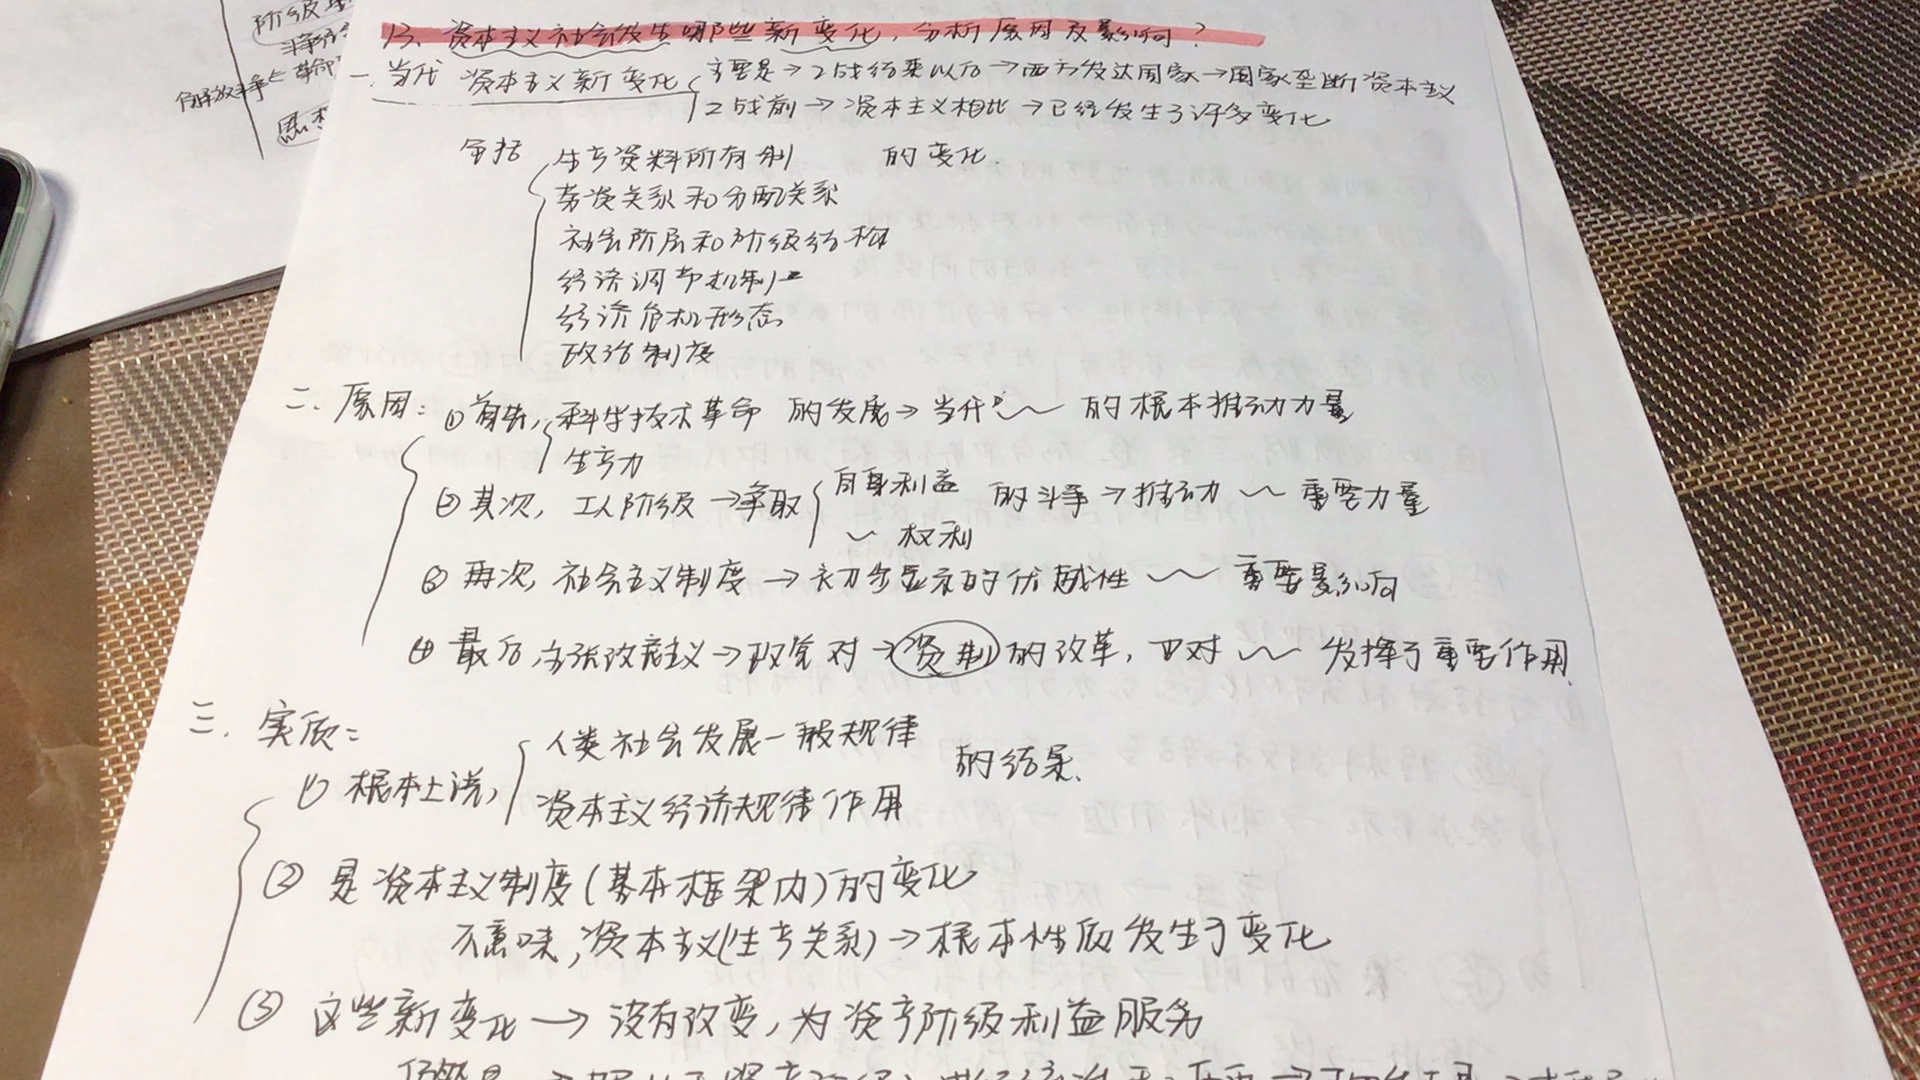 阶级
革命
13、资本主义社会发生哪些新变化,分析原因及影响?
一.当代资本主义新变化 主要是→2战结束以后→西方发达国家→国家垄断资本主义
2战前→资本主义相比→已经发生了许多变化
包括 生产资料所有制 的变化.
劳资关系和分配关系
社会阶层和阶级结构
经济调节机制
经济危机形态
政治制度
二.原因: ①首先,科学技术革命 的发展→当代〃~ 的根本推动力量
生产力
②其次, 工人阶级→争取 自身利益 的斗争→推动 ~ 重要力量
~ 权利
③再次,社会主义制度→初步显示的优越性 ~ 重要影响
④最后,主张改良主义→政党对→资制的改革,也对 ~ 发挥了重要作用.
三.实质:
人类社会发展一般规律 的结果.
① 根本上说,
资本主义经济规律作用
② 是资本主义制度(基本框架内)的变化
不意味,资本主义(生产关系)→根本性质发生了变化
③ 这些新变化→没有改变,为资产阶级利益服务